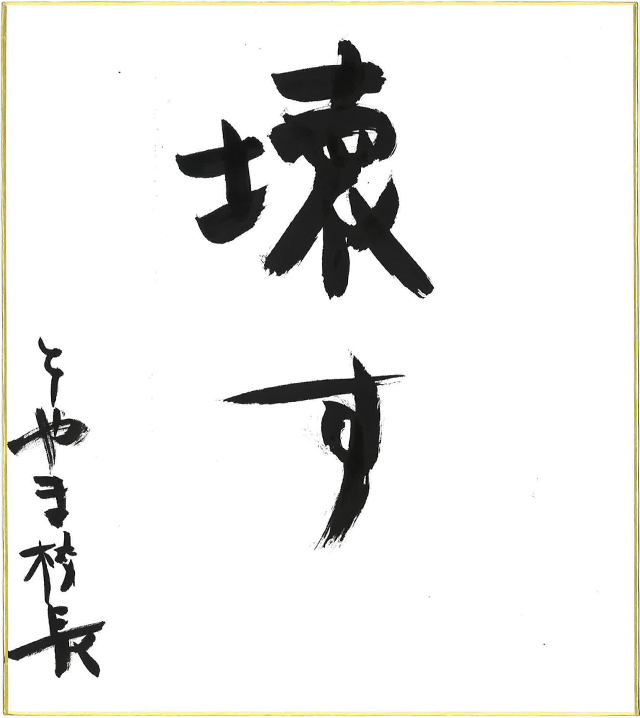 壊す
とやま校長